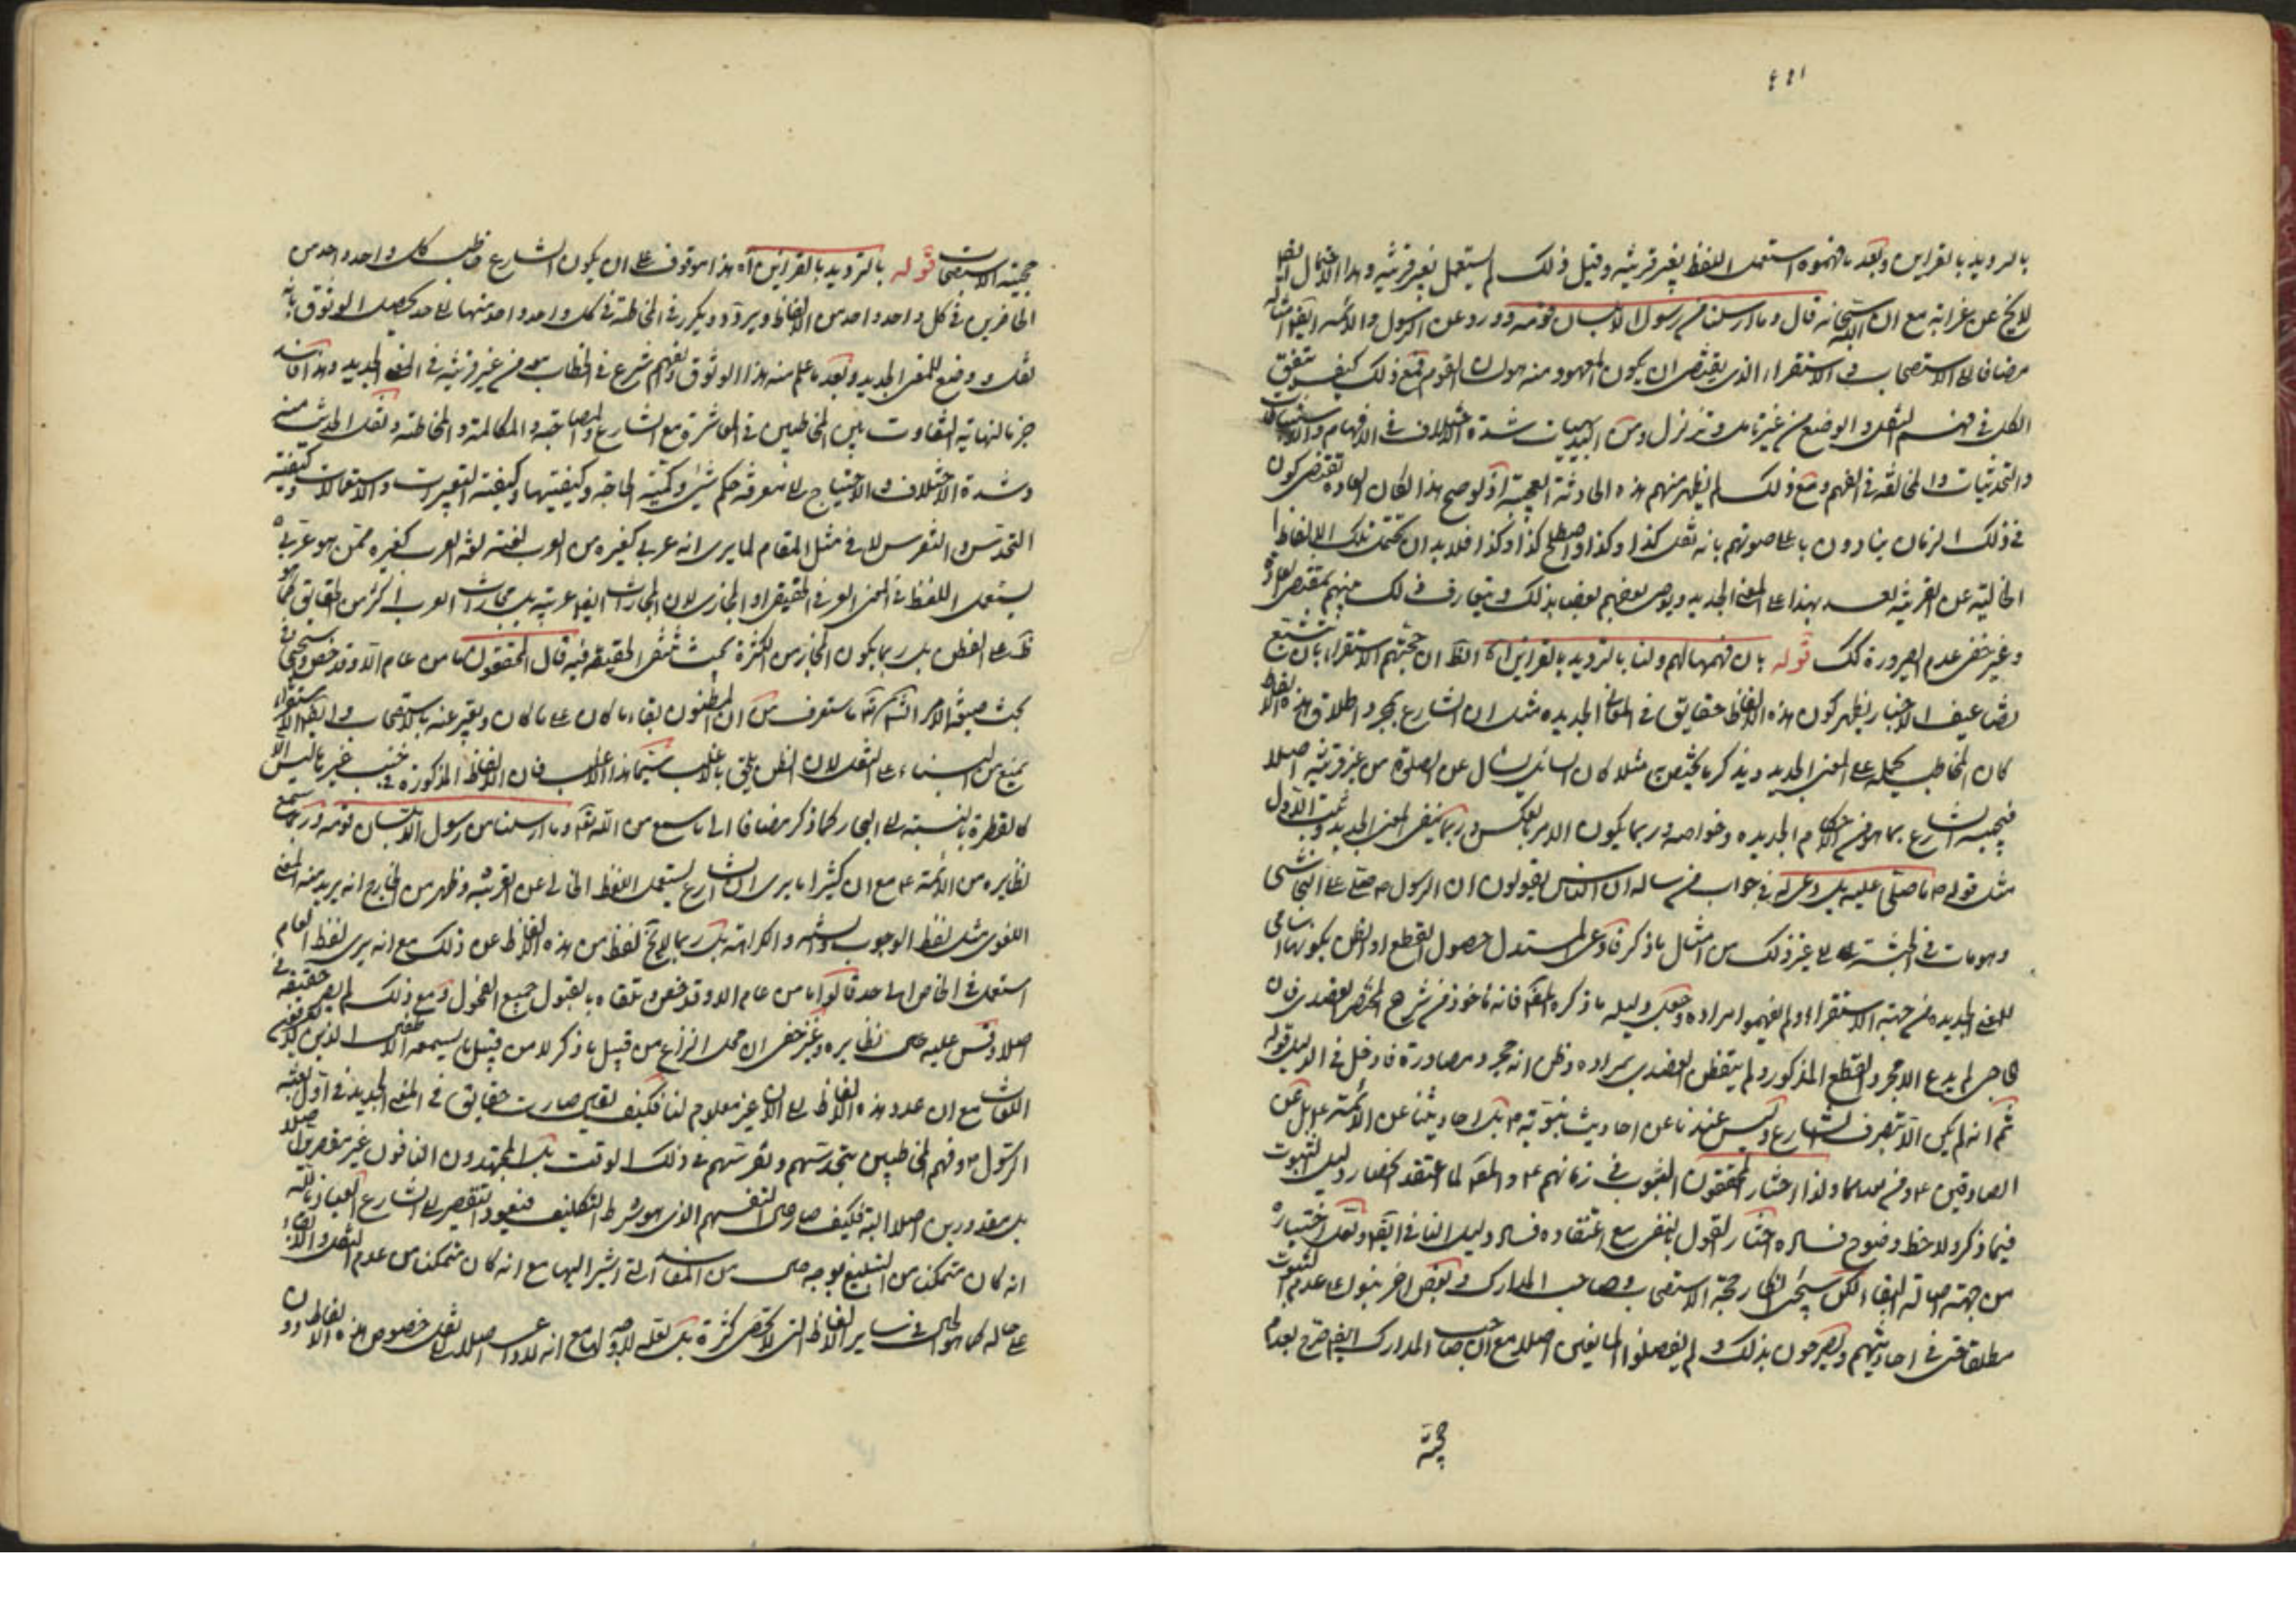 بالترديد بالقراين وبعد ما فهموه استعمل اللفظ بغير قرينة وقبل ذلك لم يستعمل بغير قرينة وهذا الاحتمال ايضا
لا يخ عن غرابة مع ان الله سبحانه قال وما ارسلنا من رسول الا بلسان قومه وورد عن الرسول والائمة ايضا امثاله
مضافا الى الاستصحاب و الاستقراء الذي يقتضي ان يكون المعهود منه هو لسان القوم فمع ذلك كيف يتفق
الكل في فهم النقل والوضع من غير تامل وتزلزل ومن البديهيات شدة اختلاف في الافهام و
في الفهم ومع ذلك لم يظهر منهم هذه الحادثة العجيبة اذ لو صح هذا لكان العادة تقتضي كون
في ذلك الزمان ينادون باعلى صوتهم بانه نقل كذا وكذا واصطلح كذا وكذا فلا بد ان تحمل تلك الالفاظ
الخالية عن القرينة بعد هذا على المعنى الجديد ويوصي بعضهم بعضا بذلك ويتعارف ذلك منهم بمقتضى العادة
وغير خفي عدم الصيرورة كك قوله بان فهمها لهم ولنا بالترديد بالقراين اه الظ ان حجتهم الاستقراء بان تتبع
تضاعيف الاخبار يظهر كون هذه الالفاظ حقايق في المعاني الجديده مثل ان الشارع بمجرد اطلاق هذه الالفاظ
كان المخاطب يحمله على المعنى الجديد ويذكر ما يختص به مثلا كان السائل يسال عن الصلوة من غير قرينة اصلا
فيجيبه الشارع بما هو من احكام الجديده وخواصه وربما يكون الامر بالعكس وربما ينفي المعنى الجديد ويثبت الاول
مثل قوله ما صلى عليه بل دعى له في جواب من ساله ان الناس يقولون ان الرسول ص صلى على النجاشي
وهو مات في الحبشة الى غير ذلك من امثال ما ذكر فادعى المستدل حصول القطع او الظن بكونها اسامي
للمعنى الجديده من جهة الاستقراء ولم يفهموا مراده وجعل دليله ما ذكره المص فانه ماخوذ من شرح المختصر للعضدي فان
الحاجبي لم يدع الا مجرد القطع المذكور ولم يتفطن العضدي بمراده وظن انه مجرد مصادرة فادخل في الدليل قوله
ثم انه لم يكن الا بتصرف الشارع وليس عندنا عن احاديث نبوية ص بل احاديثنا عن الائمة ع بل عن
الصادقين ع ومن بعدهما ولذا اختار المحققون الثبوت في زمانهم ع والمص لما اعتقد انحصار دليل الثبوت
فيما ذكر ولاحظ وضوح فساده اختار القول بالنفي مع اعتقاده فساد دليل النافي ايضا ونقل اختياره
من جهة اصالة البقاء لكن سيجئ انكار حجية الاستصحاب وصاحب المدارك وبعض اخر بنوا على عدم الثبوت
مطلقا حتى في احاديثهم ويصرحون بذلك ولم يفصلوا المانعين اصلا مع ان صاحب المدارك ايضا صرح بعدم
حجية
حجية الاستصحاب قوله بالترديد بالقراين اه هذا موقوف على ان يكون الشارع خاطب كل واحد واحد من
الحاضرين في كل واحد واحد من الالفاظ ويردد ويكرر في المخاطبة في كل واحد واحد منها الى حد يحصل الوثوق بانه
نقل ووضع للمعنى الجديد وبعد ما علم منه هذا الوثوق والفهم شرع في الخطاب معه من غير قرينة في المعنى الجديد وهذا فاسد
جزما لنهاية التفاوت بين المخاطبين في المعاشرة مع الشارع والمصاحبة والمكالمة والمخاطبة ونقل الحديث منه
وشدة الاختلاف والاحتياج الى معرفة حكم شئ وكمية الحاجة وكيفيتها وكيفية التعبيرات والاستعمالات وكيفية
التحدس والتفرس لا في مثل المقام لما يرى انه عربي كغيره من العرب لغته لغة العرب كغيره ممن هو عربي
يستعمل اللفظ في المعنى العرفي الحقيقي او المجازي لان المجازات ايضا عربية بل مجازات العرب اكثر من الحقايق
بل ربما يكون المجاز من الكثرة بحيث تنتفي الحقيقة فيه قال المحققون ما من عام الا وقد خص وسيجئ في
بحث صيغة الامر ما ستعرف من ان المظنون بقاء ما كان على ما كان ويعبر عنه بالاستصحاب وايضا الاستقراء
يمنع من البناء على النقل لان الظن يلحق بالاغلب سيما هذا الاغلب فان الالفاظ المذكورة في جنب غيرها ليس الا
كالقطرة بالنسبة الى البحار كما ذكر مضافا الى ما سمع من الله تعالى وما ارسلنا من رسول الا بلسان قومه وربما سمع
نظايره من الائمة ع مع ان كثيرا ما يرى ان الشارع يستعمل اللفظ الخالي عن القرينة وظهر من الخارج انه يريد منه المعنى
اللغوي مثل لفظ الوجوب والسنة والكراهة بل ربما لا يخ لفظ من هذه الالفاظ عن ذلك مع انه يرى لفظ العام
استعمل في الخاص الى حد قالوا ما من عام الا وقد خص وتلقاه بالقبول جميع الفحول ومع ذلك لم يصر حقيقة في
اصلا وقس عليه حال نظايره وغير خفي ان محل النزاع من قبيل ما ذكر لا من قبيل ما يسمعه الاطفال الذين لا يعرفون
اللغات مع ان عدد هذه الالفاظ الى الان غير معلوم لنا فكيف يقال صارت حقايق في المعنى الجديد في اول بعثة
الرسول ص وفهم المخاطبين بتحدسهم وتفرسهم في ذلك الوقت بل المجتهدون النافون غير مقصرين اصلا
بل معذورين اصلا البتة فكيف صار حال تفهيمهم الذي هو شرط التكليف فيعود التقصير الى الشارع العياذ بالله
انه كان متمكنا من التبليغ بوجه خال من المفاسد التي اشير اليها مع انه كان متمكنا من عدم النقل والابقاء
على حاله كما هو الحال في ساير الالفاظ التي لا تحصى كثرة بل نقله لا وجه لها مع انه لا داعي اصلا الى نقل خصوص هذه الالفاظ دون